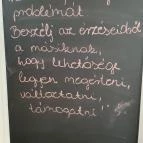 problémát.
Beszélj az érzéseidből
a másiknak,
hogy lehetősége
legyen megérteni,
változtatni,
támogatni".